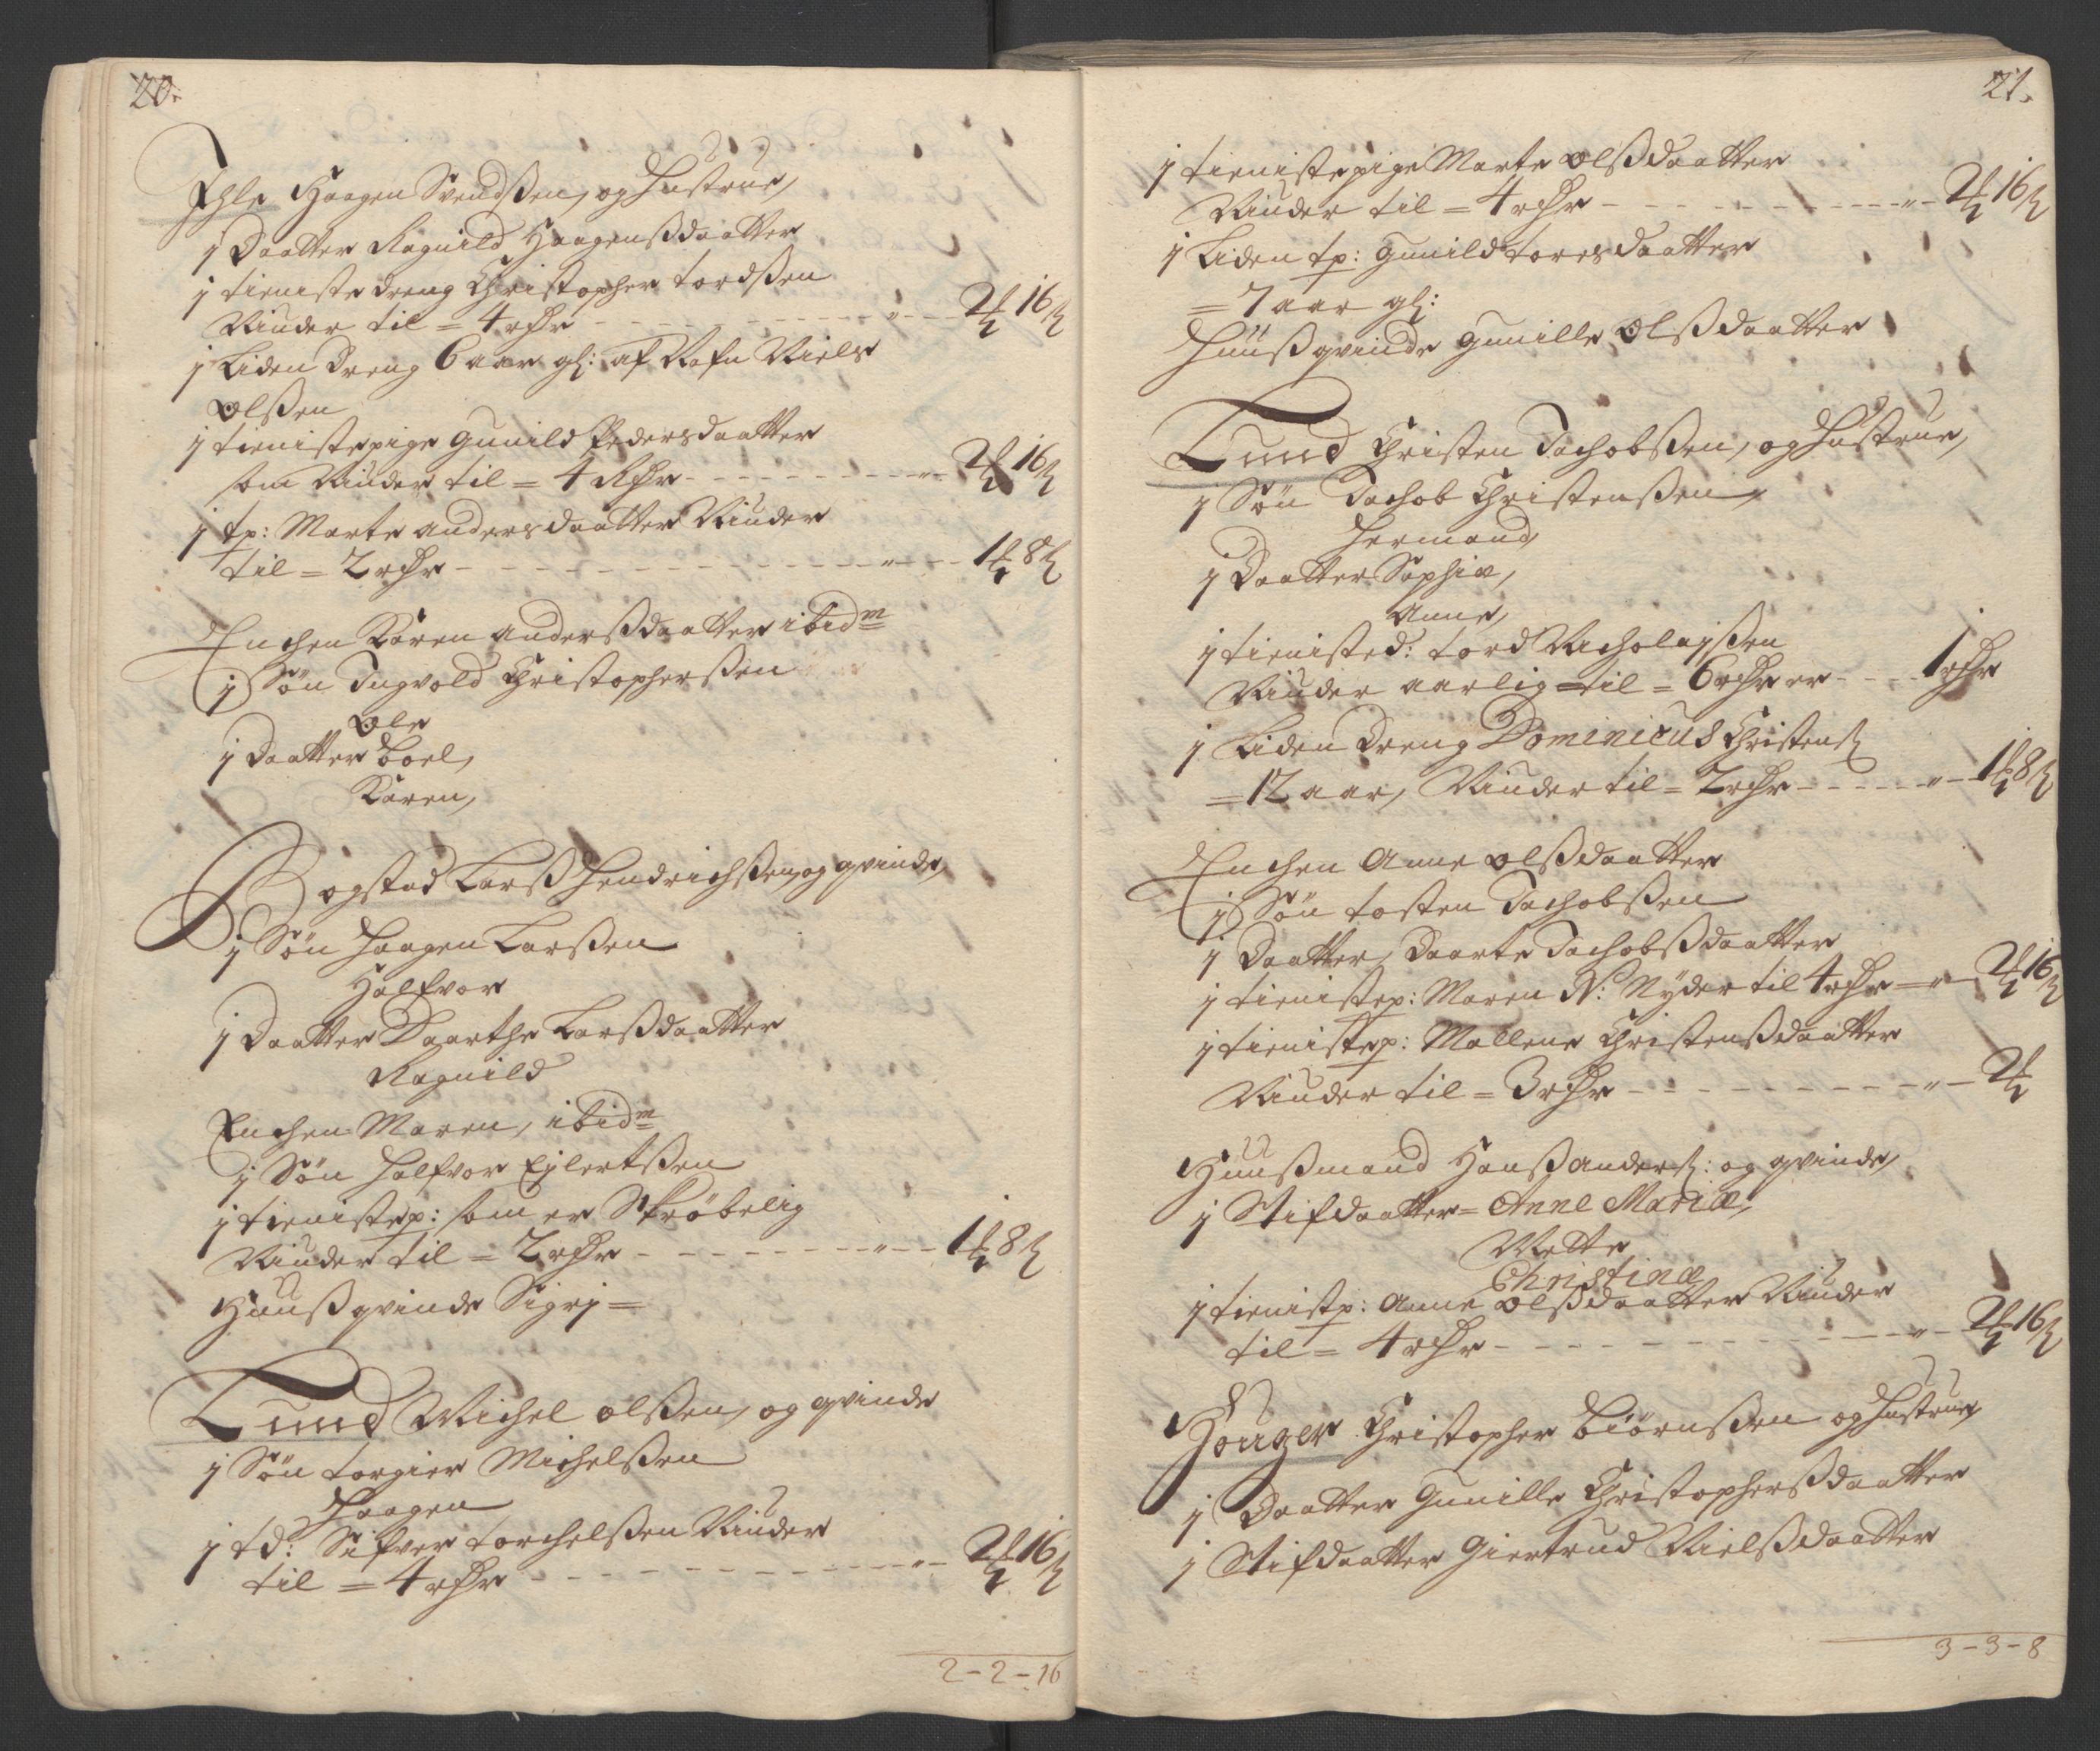 20.
Ihle Haagen Svendßen, og Hustrue,
1 Daatter Ragnild Haagenßdaatter
1 tieniste dreng Christopher tordßen
Niuder til = 4 rdr - - - " - 2 ort 16 s
1 Liden Dreng 6 aar gl: af Nafn Niels
Olßen
1 tienistepige Gunild Pedersdaatter
som Niuder til = 4 Rdr - - - " - 2 ort 16 s
1 tp: Marte andersdaatter Niuder
til = 2 rdr - - - " - 1 ort 8 s
Enchen Karen anderßdaatter ibidm
1 Søn Ingvold Christopherßen
Ole
1 Daatter Boel,
Karen,
Bogstad Larß Hendrichßen, og qvinde,
1 Søn Haagen Larßen
Halfvor
1 Daatter Daarthe Larßdaatter
Ragnild
Enchen Maren, ibidm
1 Søn Halfvor Ejlertßen
1 tienistep: som er Skrøbelig
Niuder til = 2 rdr - - - " - 1 ort 8 s
Huußqvinde Sigrj =
Lund Michel olßen, og qvinde
1 Søn torgier Michelßen
Haagen
1 td: Sifver torchelßen Niuder
til = 4 rdr - - - " - 2 ort 16 s
2 - 2 - 16
21.
1 tienistepige Marte olßdaatter
Niuder til = 4 rdr - - - " - 2 ort 16 s
1 Liden tp: Gunild toresdaatter
= 7 aar gl:
Huußqvinde Gunille Olßdaatter
Lund Christen Jachobßen, og Hustrue,
1 Søn Jachob Christenßen,
Hermand,
1 Daatter Sophia,
Anne,
1 tienisted: tord Nicholajßen
Niuder aarlig til = 6 rdr er - - - 1 rdr
1 Liden Dreng Dominicus Christens
= 12 aar, Niuder til = 2 rdr - - - " - 1 ort 8 s
Enchen Anne olßdaatter
1 Søn tosten Jachobßen
1 Daatter, Daarte Jachobßdaatter
1 tienistep: Maren N: Nyder til 4 rdr - " - 2 ort 16 s
1 tienistep: Mallene Christenßdaatter
Niuder til = 3 rdr - - - " - 2 ort
Huußmand Hanß anders: og qvinde,
1 Stifdaatter = Anne Maria,
Mette
Christina
1 tienistp: Anne olßdaatter Niuder
til = 4 rdr - - - " - 2 ort 16 s
Houger Christopher Biørnßen og Hustrue,
1 Daatter Gunille Christopherßdaatter
1 Stifdaatter Giertrud Nielßdaatter
3 - 3 - 8